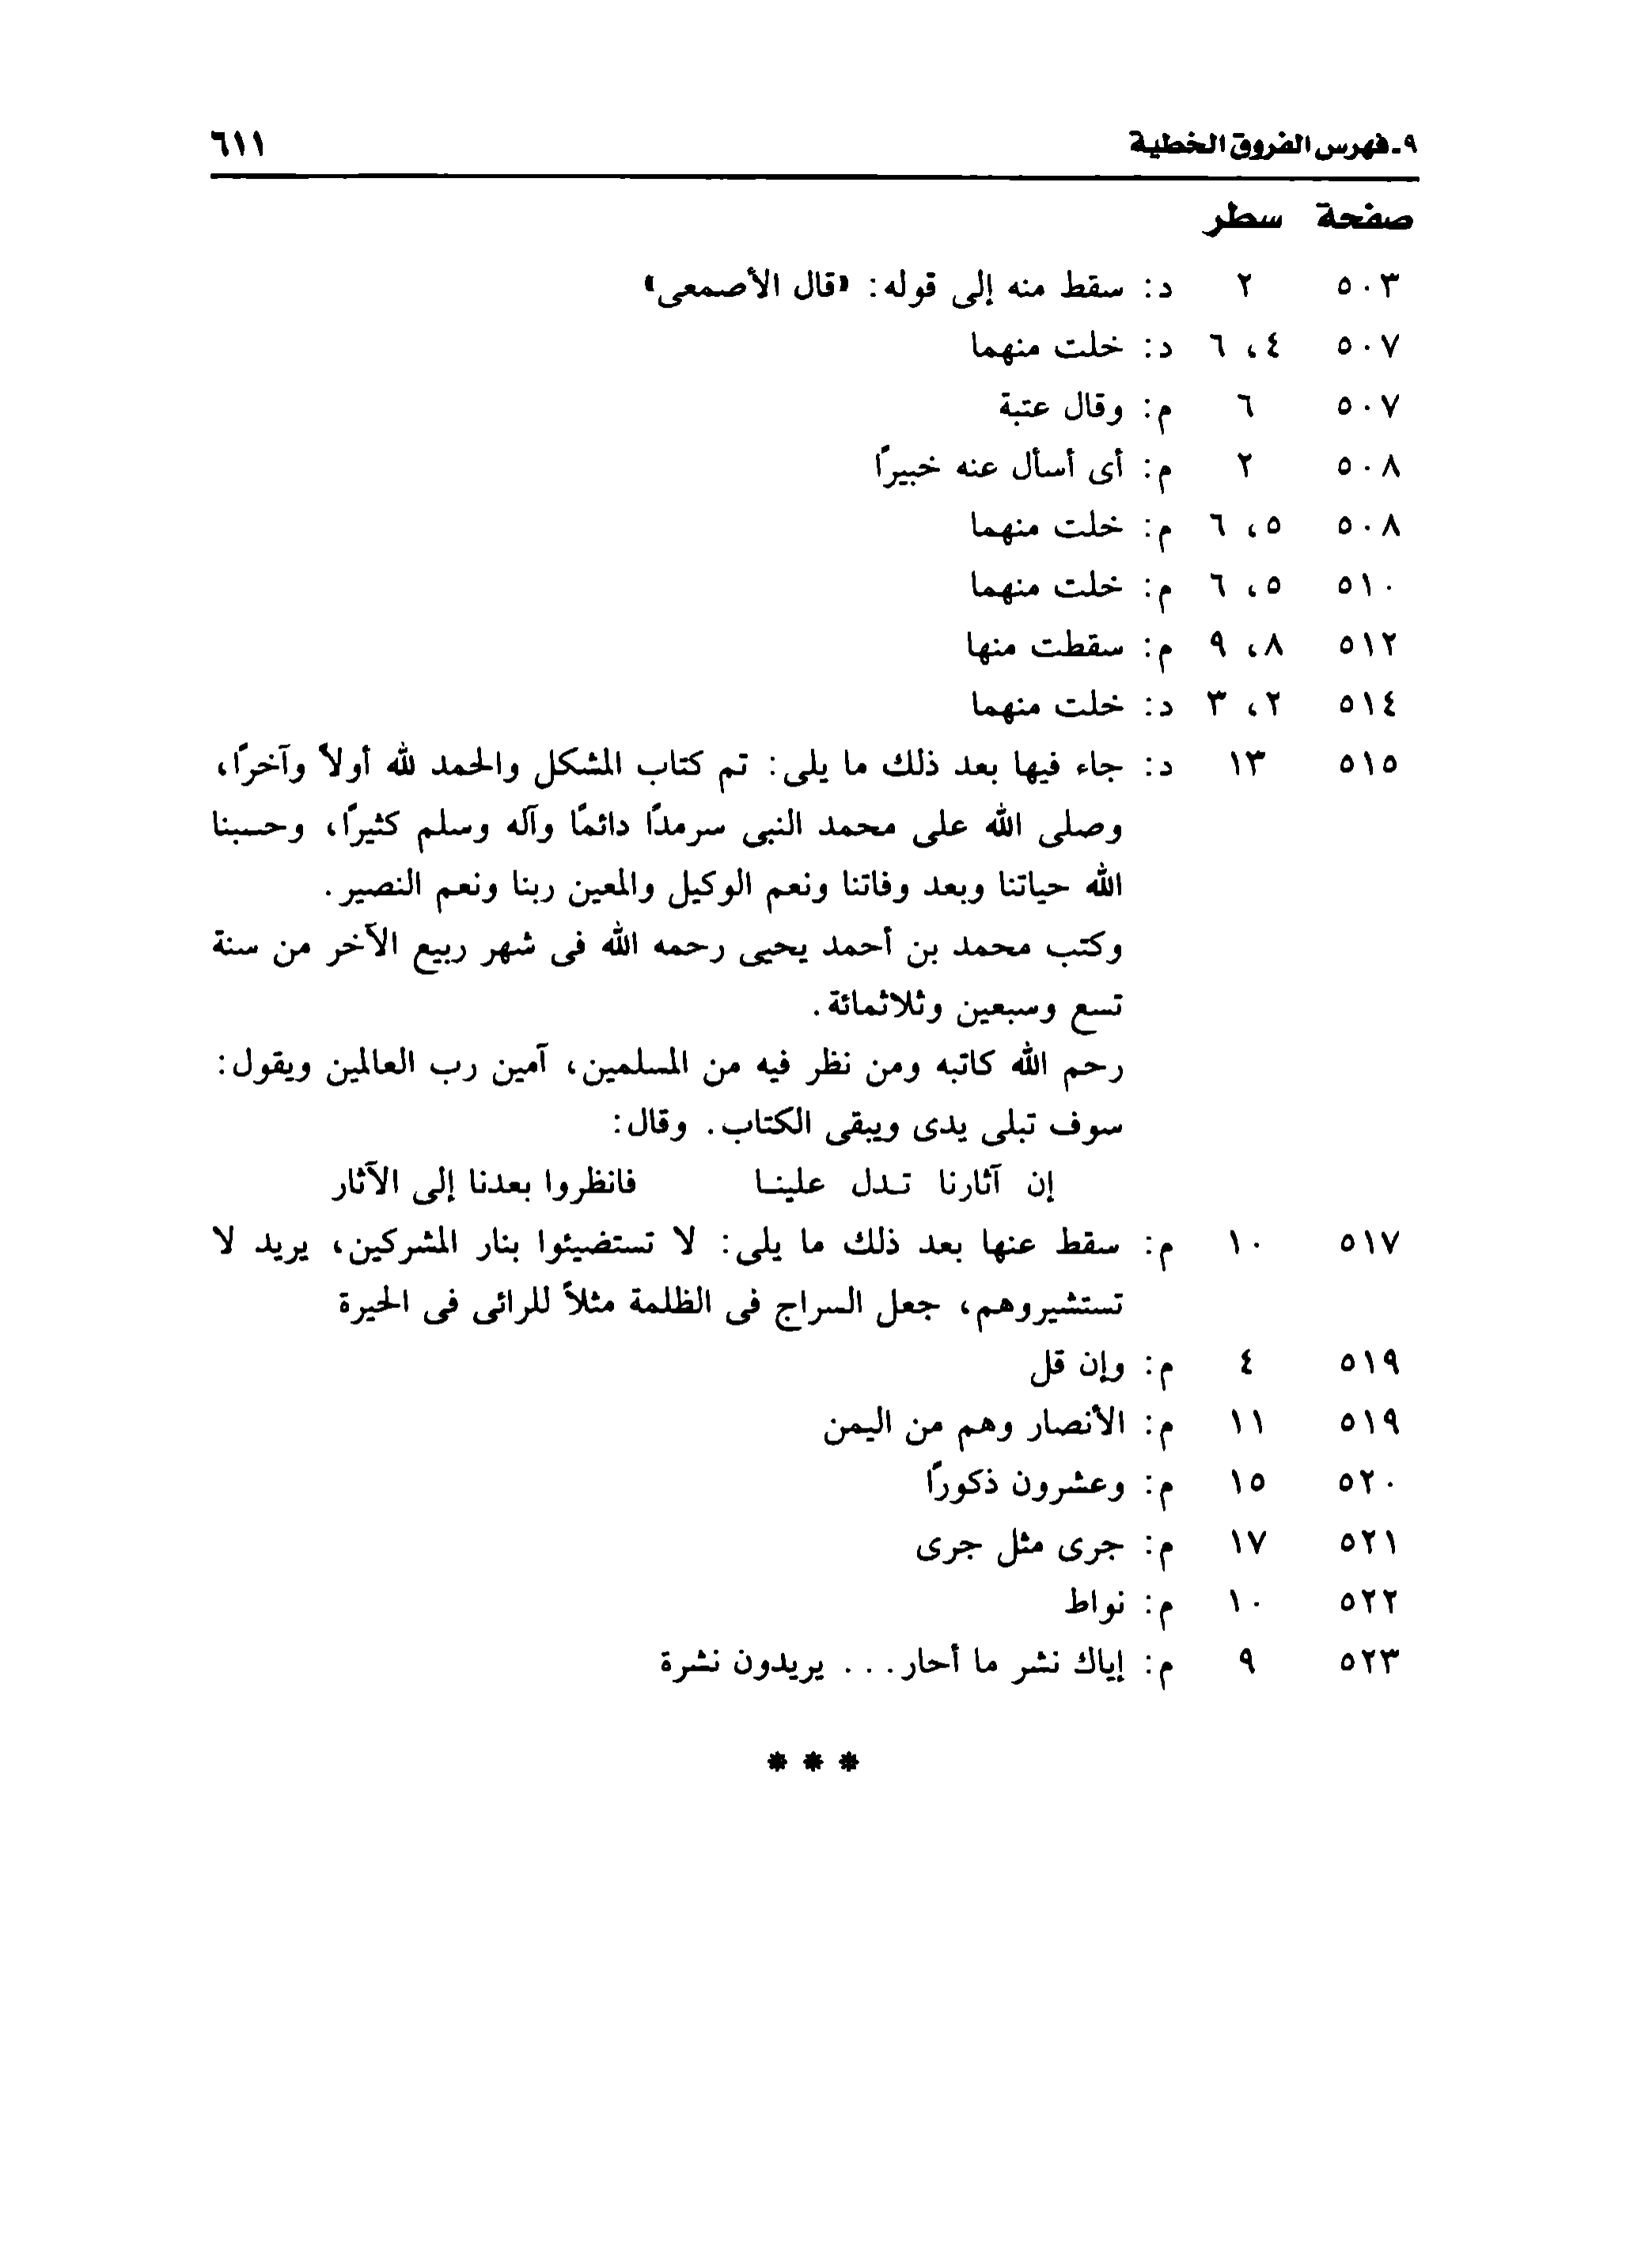 ٩ـ فهرس الفروق الخطية ٦١١
صفحة سطر
٥٠٣ ٢ د: سقط منه إلى قوله: «قال الأصمعى»
٥٠٧ ٤، ٦ د: خلت منهما
٥٠٧ ٦ م: وقال عتبة
٥٠٨ ٢ م: أى أسأل عنه خبيرًا
٥٠٨ ٥، ٦ م: خلت منهما
٥١٠ ٥، ٦ م: خلت منهما
٥١٢ ٨، ٩ م: سقطت منها
٥١٤ ٢، ٣ د: خلت منهما
٥١٥ ١٣ د: جاء فيها بعد ذلك ما يلى: تم كتاب المشكل والحمد لله أولاً وآخرًا،
وصلى الله على محمد النبى سرمدًا دائمًا وآله وسلم كثيرًا، وحسبنا
الله حياتنا وبعد وفاتنا ونعم الوكيل والمعين ربنا ونعم النصير.
وكتب محمد بن أحمد يحيى رحمه الله فى شهر ربيع الآخر من سنة
تسع وسبعين وثلاثمائة.
رحم الله كاتبه ومن نظر فيه من المسلمين، آمين رب العالمين ويقول:
سوف تبلى يدى ويبقى الكتاب. وقال:
إن آثارنا تـدل علينـا فانظروا بعدنا إلى الآثار
٥١٧ ١٠ م: سقط عنها بعد ذلك ما يلى: لا تستضيئوا بنار المشركين، يريد لا
تستشيروهم، جعل السراج فى الظلمة مثلاً للرائى فى الحيرة
٥١٩ ٤ م: وإن قل
٥١٩ ١١ م: الأنصار وهم من اليمن
٥٢٠ ١٥ م: وعشرون ذكورًا
٥٢١ ١٧ م: جرى مثل جرى
٥٢٢ ١٠ م: نواط
٥٢٣ ٩ م: إياك نشر ما أحار... يريدون نشرة
* * *